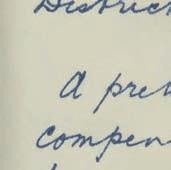 District
A pre
compen